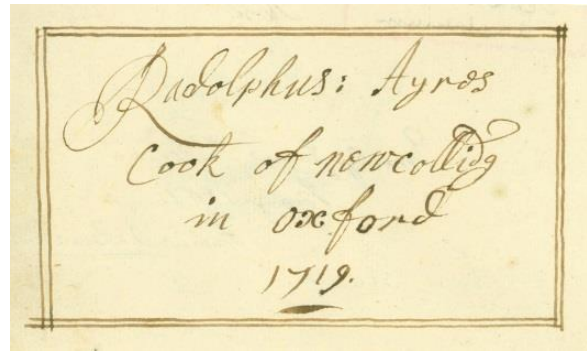 Radolphus: Ayres
Cook of newcollidg
in oxford
1719.